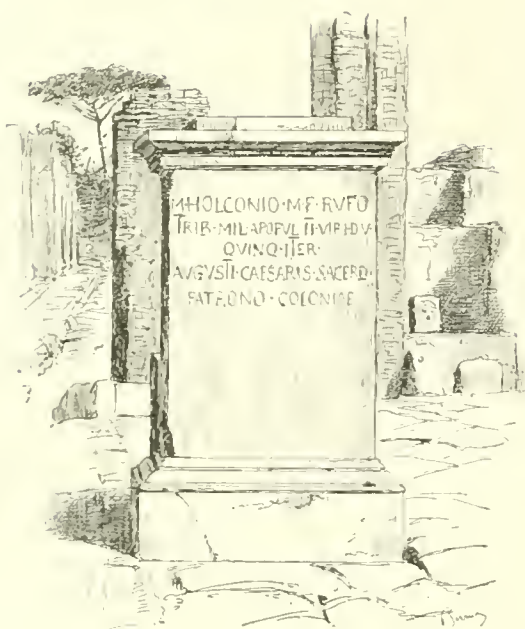 M·HOLCONIO·M·F·RVFO
TRIB·MIL·APOPVL·II·VIR·I·D·V
QVINQ·ITER·
AVGVSTI·CAESARIS·SACERD·
PATRONO·COLONIAE